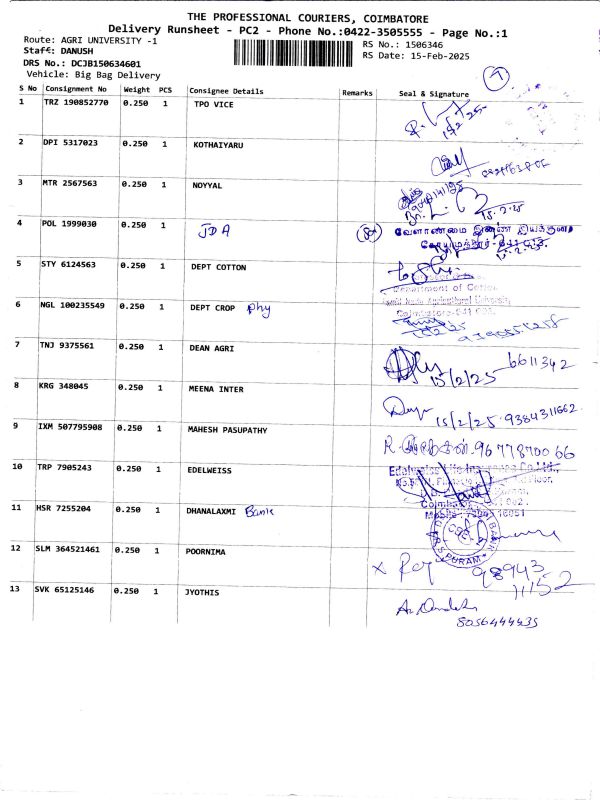 THE PROFESSIONAL COURIERS, COIMBATORE
Delivery Runsheet - PC2 - Phone No.:0422-3505555 - Page No.:1
Route: AGRI UNIVERSITY -1
RS No.: 1506346
Staff: DANUSH
RS Date: 15-Feb-2025
DRS No.: DCJB150634601
Vehicle: Big Bag Delivery
S No Consignment No Weight PCS Consignee Details Remarks Seal & Signature
1 TRZ 190852770 0.250 1 TPO VICE
2 DPI 5317023 0.250 1 KOTHAIYARU
3 MTR 2567563 0.250 1 NOYYAL
4 POL 1999030 0.250 1 JDA வேளாண்மை இணை இயக்குனர்
5 STY 6124563 0.250 1 DEPT COTTON
Department of Cotton
Tamil Nadu Agricultural University,
6 NGL 100235549 0.250 1 DEPT CROP Phy
7 TNJ 9375561 0.250 1 DEAN AGRI 15/2/25 6611342
8 KRG 348045 0.250 1 MEENA INTER 15/2/25 9384311662
9 IXM 507795908 0.250 1 MAHESH PASUPATHY 96 778700 66
10 TRP 7905243 0.250 1 EDELWEISS Edelweiss Life Insurance Co.Ltd.,
11 HSR 7255204 0.250 1 DHANALAXMI Bank
12 SLM 364521461 0.250 1 POORNIMA 98943 11152
13 SVK 65125146 0.250 1 JYOTHIS
8056444435